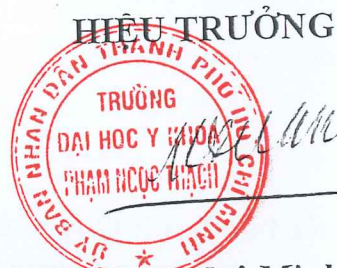 HIỆU TRƯỞNG
ỦY BAN NHÂN DÂN THÀNH PHỐ HỒ CHÍ MINH
TRƯỜNG
ĐẠI HỌC Y KHOA
PHẠM NGỌC THẠCH